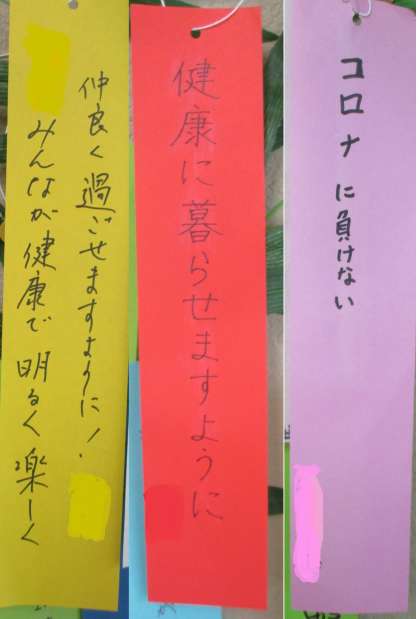 みんなが健康で明るく楽しく
仲良く過ごせますように!
健康に暮らせますように
コロナに負けない